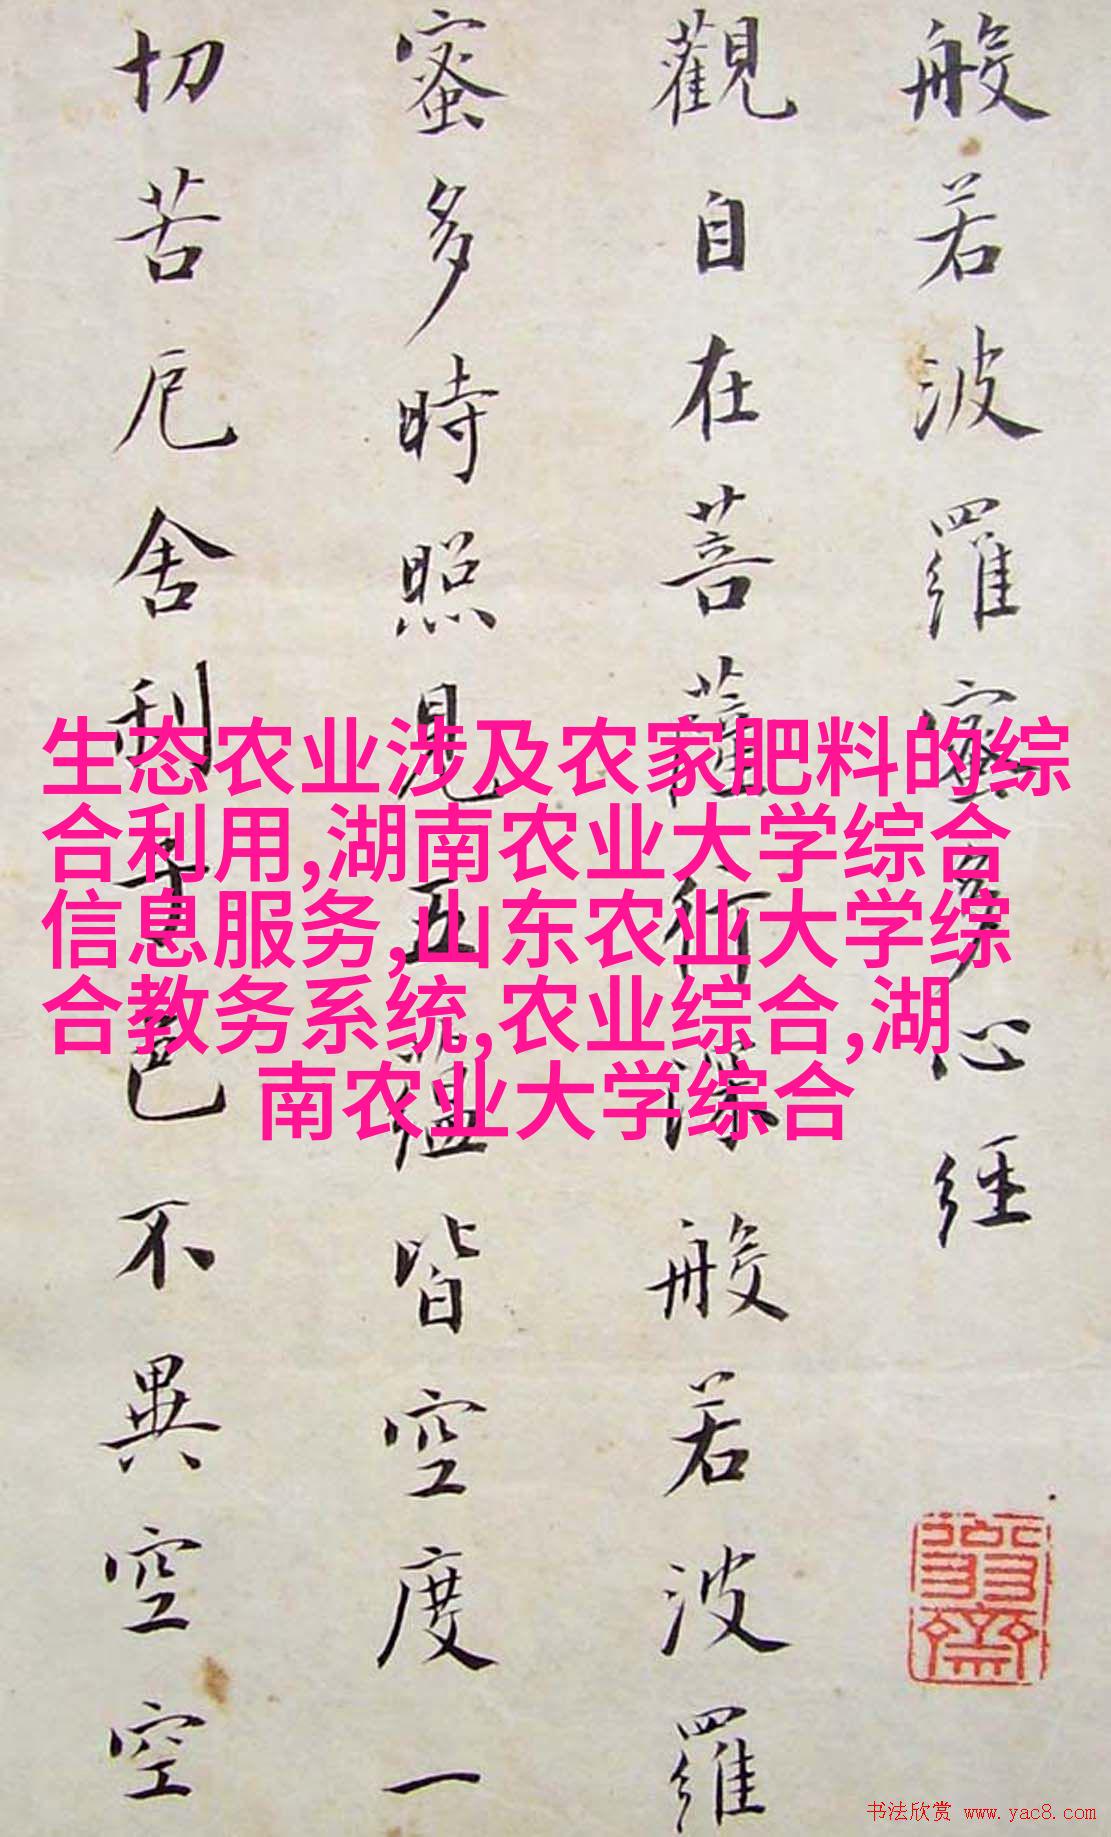 般若波羅蜜多心經
觀自在菩薩行深般若波羅
蜜多時照見五蘊皆空度一
切苦厄舍利子色不異空空
生态农业涉及农家肥料的综
合利用,湖南农业大学综合
信息服务,山东农业大学综
合教务系统,农业综合,湖
南农业大学综合
书法欣赏 www.yac8.com